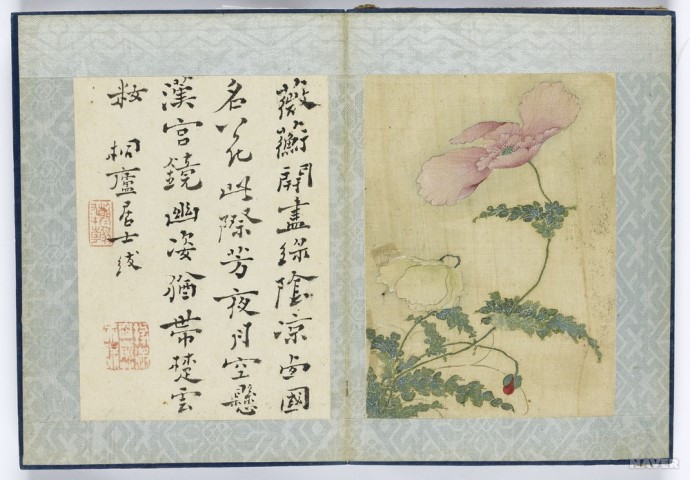 薇蘅開盡綠陰凉國
名花此際芳夜月空懸
漢宮鏡幽姿猶帶楚雲
粧 桐廬居士
NAVER